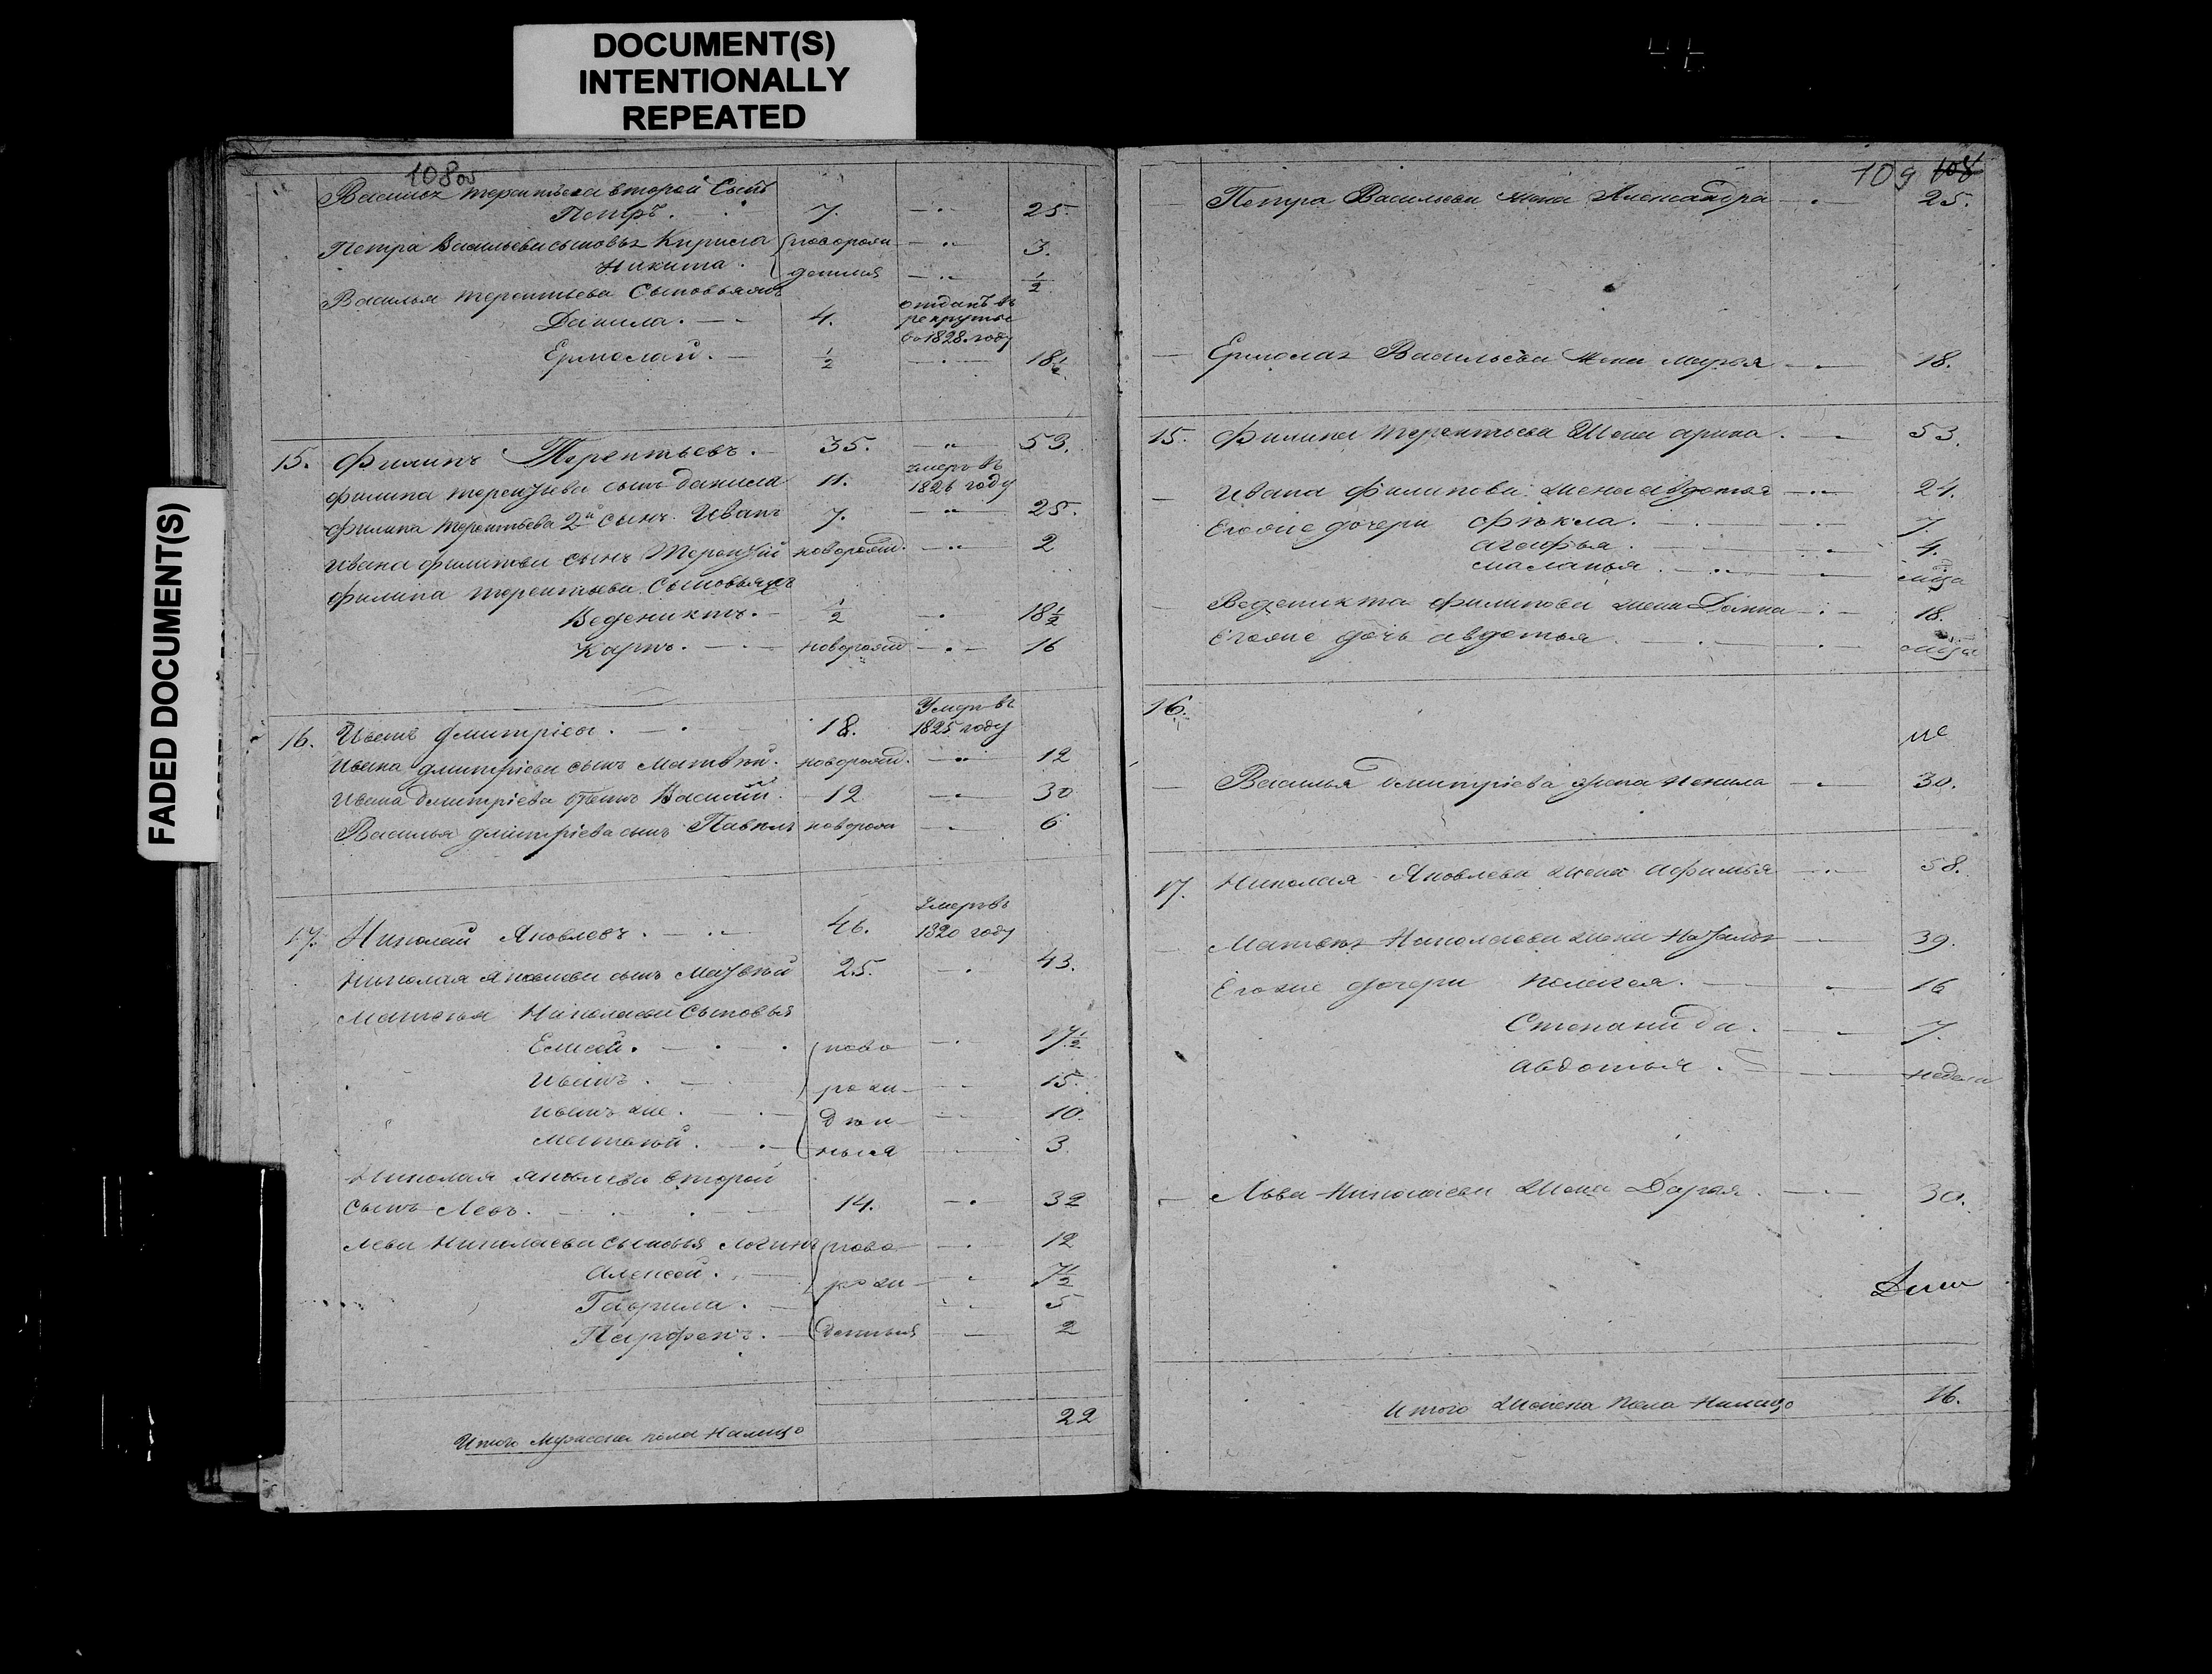 DOCUMENT(S)
INTENTIONALLY
REPEATED
FADED DOCUMENT(S)
108 об
Василья Терентьева второй Сынъ
Петръ. 7. 25.
Петра Васильева сыновья Кирила новорож 3.
Никита. денныя ½
Василья Терентьева Сыновьями
Данила. 4. отданъ въ рекруты во 1828 году
Ермолай. ½ 18½
15. Филипъ Терентьевъ. 35. 53.
Филипа Терентьева сынъ Данила 11. умеръ въ 1826 году
Филипа Терентьева 2й сынъ Иванъ 7. 25.
Ивана Филипова сынъ Терентий новорожд. 2
Филипа Терентьева Сыновья
Ведениктъ. ½ 18½
Карпъ. новорожд 16
16. Иванъ Дмитріевъ. 18. Умеръ въ 1825 году
Ивана Дмитріева сынъ Матвей. новорожд. 12
Ивана Дмитріева братъ Василий. 12 30
Василья Дмитріева сынъ Павелъ новорож 6
17. Николай Яковлевъ. 46. Умеръ въ 1820 году
Николая Яковлева сынъ Матвей 25. 43.
Матвея Николаева Сыновья
Елисей. ново 17½
Иванъ. рож 15.
Иванъ же. ден 10.
Матвей. ныя 3
Николая Яковлева второй
Сынъ Левъ. 14. 32
Льва Николаева сыновья Логинъ ново 12
Алексей. рож 7½
Гаврила. 5
Парфенъ. денныя 2
Итого Мужеска пола Налицо 22
109 108
Петра Васильева жена Александра 25.
Ермолая Васильева жена Марья 18.
15. Филипа Терентьева Жена Арина. 53.
Ивана Филипова жена Авдотья 24.
Егоже дочери Фекла. 7.
Агафья. 4.
Маланья.
Веденикта Филипова жена Домна 18.
Егоже дочь Авдотья.
16.
Василья Дмитріева жена Ненила 30.
17. Николая Яковлева жена Афимья 58.
Матвея Николаева жена Наталья 39.
Егоже дочери Пелагея. 16
Степанида. 7.
Авдотья. недели
Льва Николаева Жена Дарья. 30.
Итого Женска Пола Налицо 16.